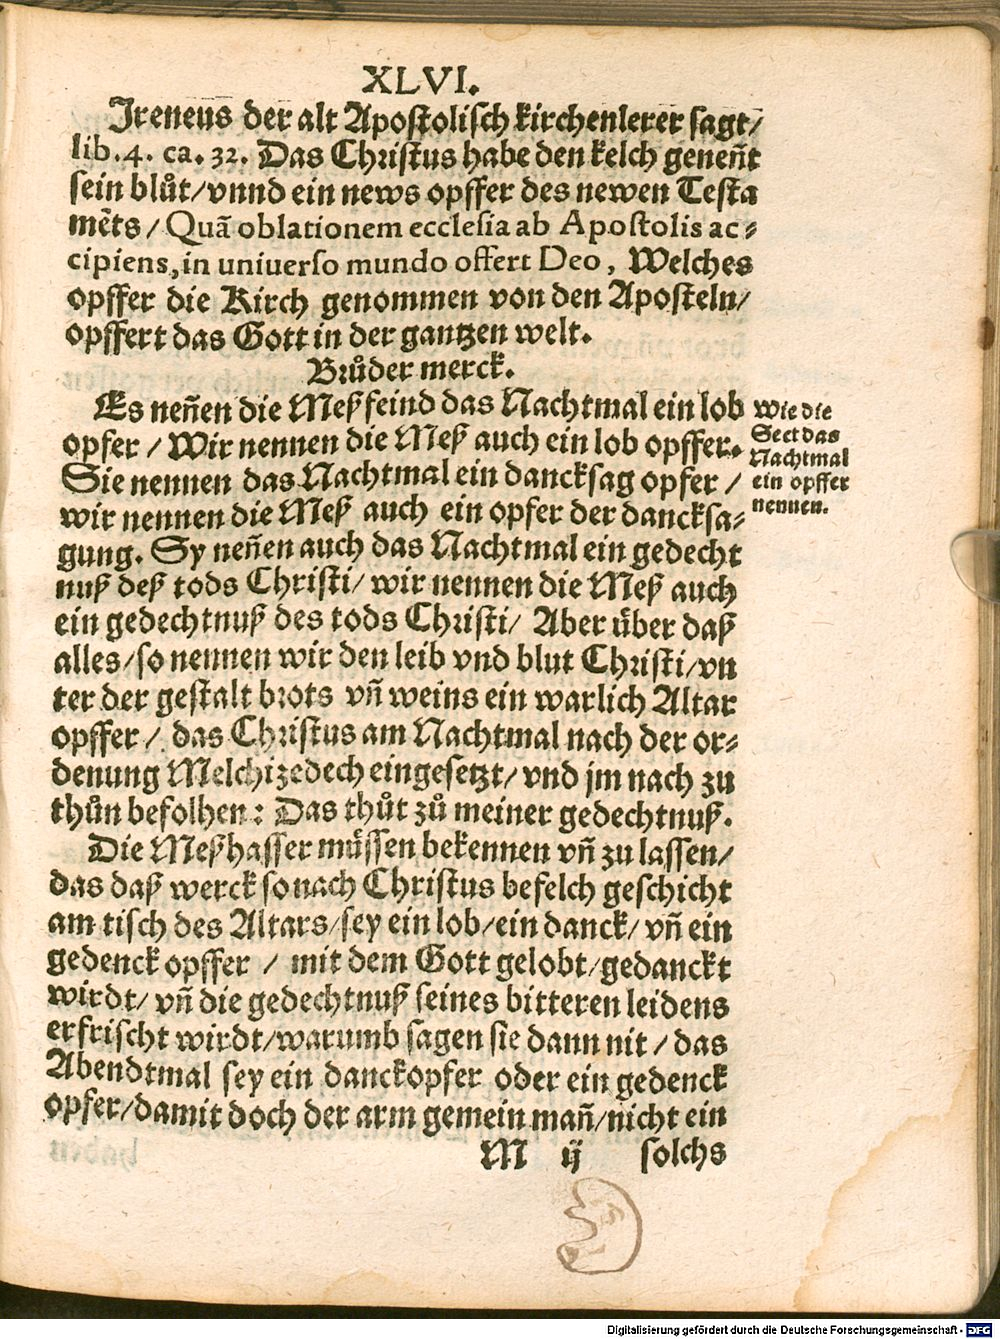 XLVI.
Ireneus der alt Apostolisch kirchenlerer sagt/
lib.4. ca. 32. Das Christus habe den kelch geneñt
sein blůt/vnnd ein news opffer des newen Testa
mẽts/Quã oblationem ecclesia ab Apostolis ac⸗
cipiens,in uniuerso mundo offert Deo, Welches
opffer die Kirch genommen von den Aposteln/
opffert das Gott in der gantzen welt.
Brůder merck.
Es neñen die Meß feind das Nachtmal ein lob
opfer / Wir nennen die Meß auch ein lob opffer.
Sie nennen das Nachtmal ein dancksag opfer /
wir nennen die Meß auch ein opfer der dancksa⸗
gung. Sy neñen auch das Nachtmal ein gedecht
nuß deß tods Christi/ wir nennen die Meß auch
ein gedechtnuß des tods Christi/ Aber uͤber daß
alles/so nennen wir den leib vnd blut Christi/vn
ter der gestalt brots vñ weins ein warlich Altar
opffer / das Christus am Nachtmal nach der or⸗
denung Melchizedech eingesetzt/vnd jm nach zu
thůn befolhen: Das thůt zů meiner gedechtnuß.
Die Meßhasser muͤssen bekennen vñ zu lassen/
das daß werck so nach Christus befelch geschicht
am tisch des Altars/sey ein lob/ein danck/ vñ ein
gedenck opffer / mit dem Gott gelobt/gedanckt
wirdt/ vñ die gedechtnuß seines bitteren leidens
erfrischt wirdt/warumb sagen sie dann nit / das
Abendtmal sey ein danckopfer oder ein gedenck
opfer/damit doch der arm gemein mañ/nicht ein
M ij solchs
Wie die
Sect das
Nachtmal
ein opffer
nennen.
Digitalisierung gefördert durch die Deutsche Forschungsgemeinschaft - DFG